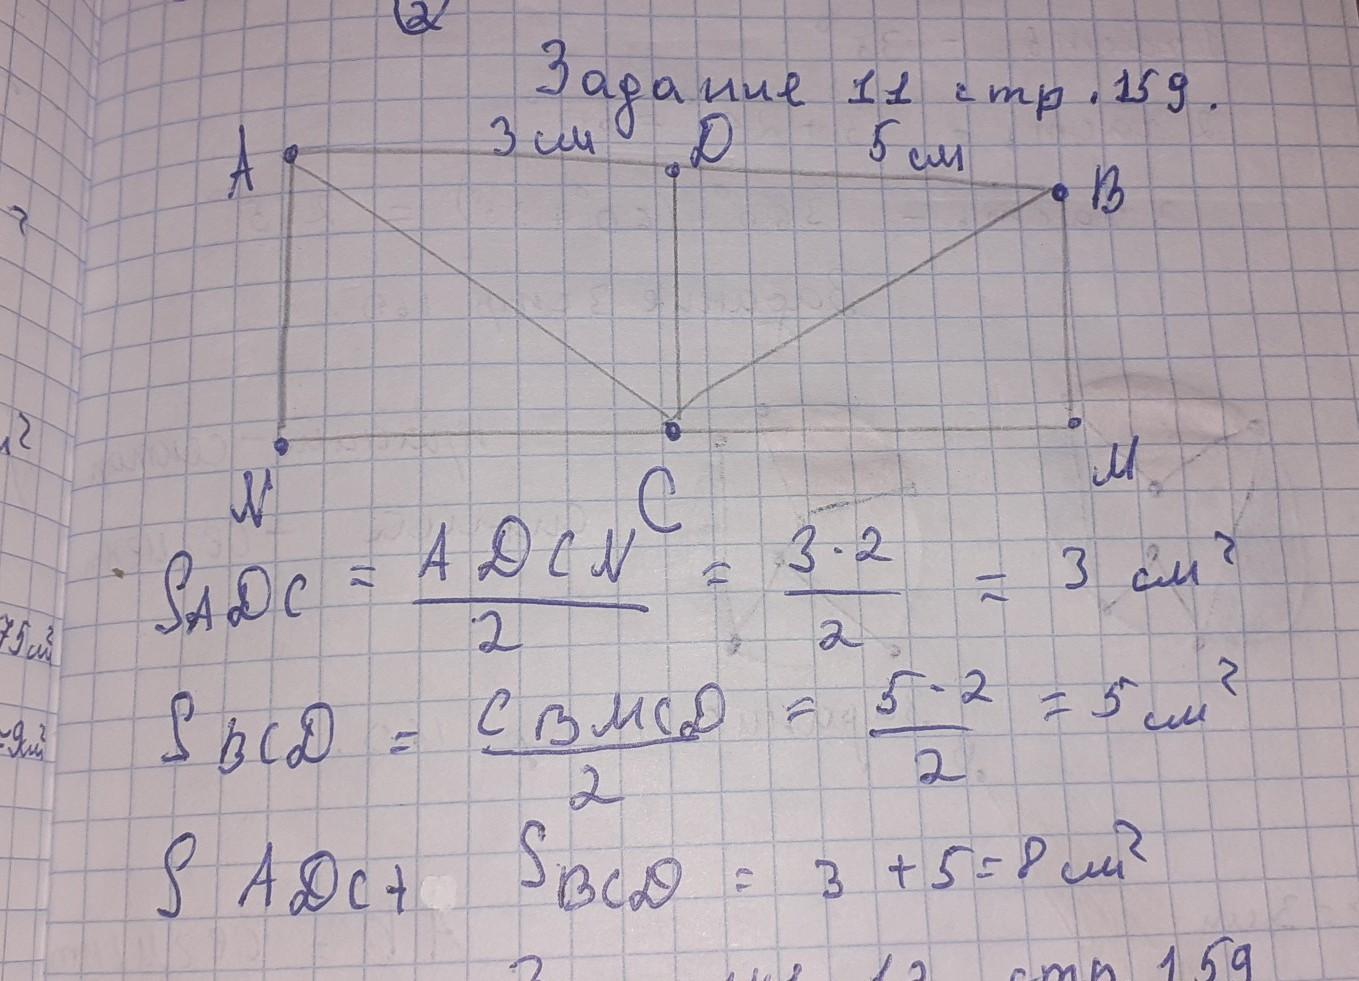 2
Задание 11 стр. 159.
A 3 см D 5 см B
N C M
S ADC = ADCN / 2 = 3·2 / 2 = 3 см²
S BCD = CBMCD / 2 = 5·2 / 2 = 5 см²
S ADC + S BCD = 3 + 5 = 8 см²
стр 159
75 м²